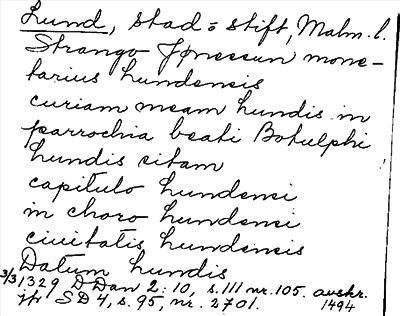 Lund, stad = stift, Malm. l.
Strango Jønessun mone-
tarius lundensis
curiam meam lundis in
parrochia beati Botulphi
lundis sitam
capitulo lundensi
in choro lundensi
ciuitatis lundensis
Datum lundis
3/3 1329 D Dan 2:10, s. 111 nr. 105. avskr.
jfr SD 4, s. 95, nr. 2701. 1494